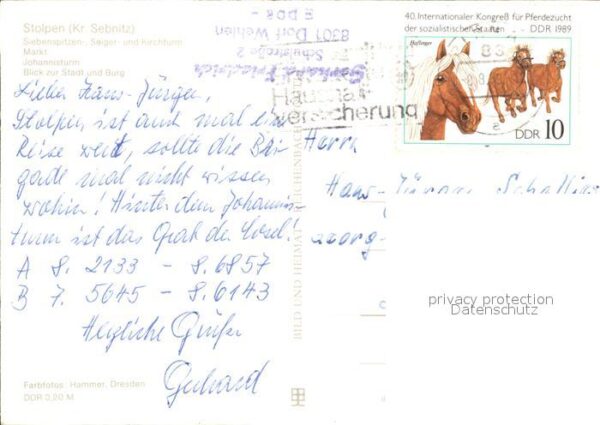 Stolpen (Kr. Sebnitz)
Siebenspitzen-, Seiger- und Kirchturm
Markt
Johannisturm
Blick zur Stadt und Burg
Lieber Hans-Jürgen,
Stolpen ist auch mal eine
Reise wert, sollte die Bri-
gade mal nicht wissen
wohin! Hinter dem Johannis-
turm ist das Grab der Cosel!
A 8. 2133 - 8. 6857
B 7. 5645 - 8. 6143
Herzliche Grüße
Gerhard
Farbfotos: Hammer, Dresden
DDR 0,20 M
BILD UND HEIMAT
Gerhard Friedrich
Schulstraße 2
8301 Dorf Wehlen
- DDR -
Haushalt
versicherung
40. Internationaler Kongreß für Pferdezucht
der sozialistischen Staaten
DDR 1989
Haflinger
DDR 10
Herrn
Hans-Jürgen
privacy protection
Datenschutz